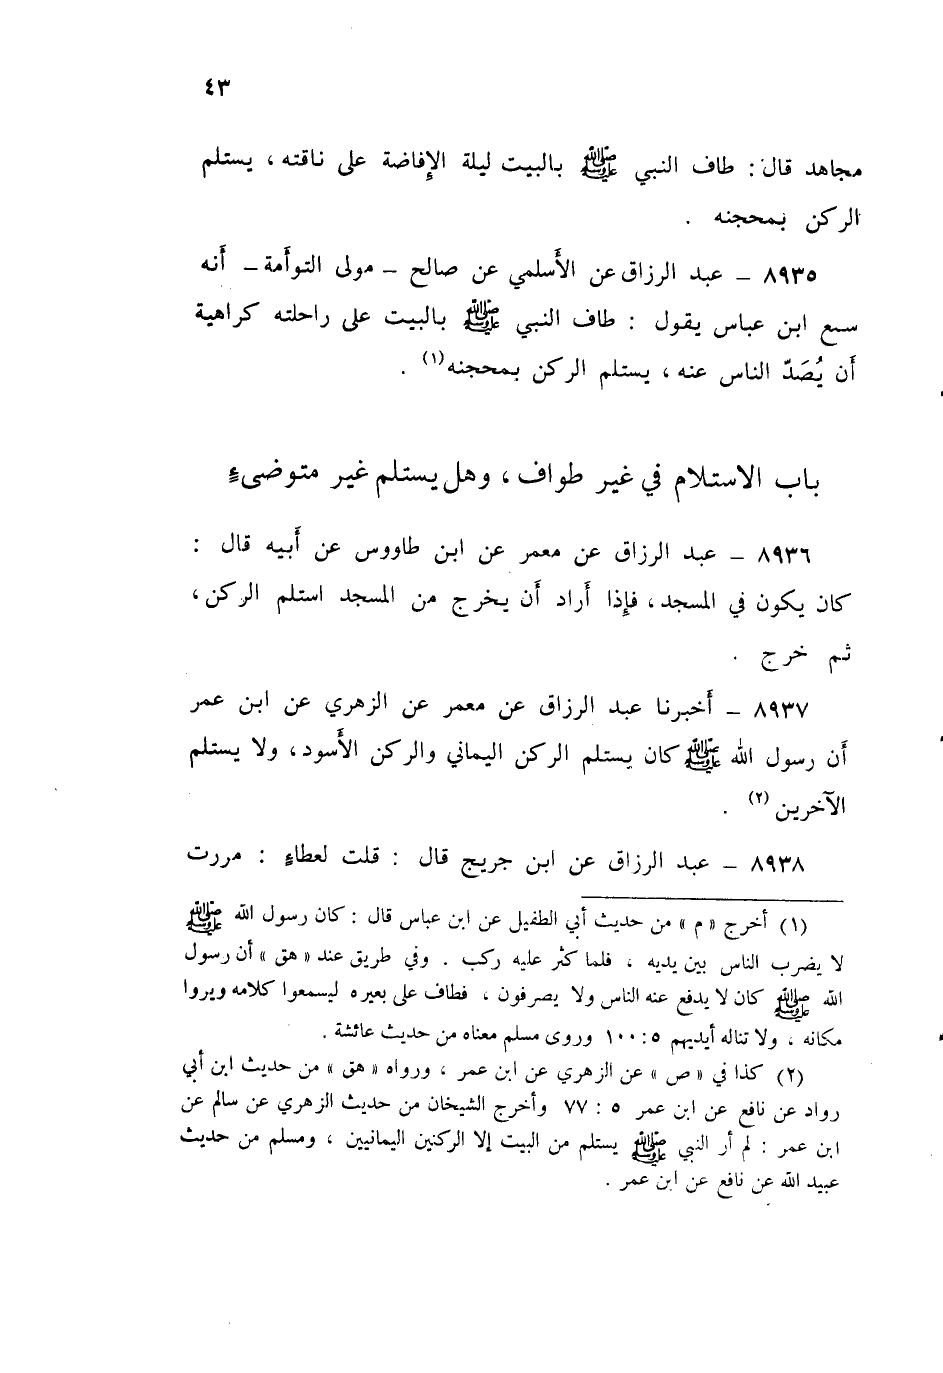 ٤٣
مجاهد قال : طاف النبي ﷺ بالبيت ليلة الإفاضة على ناقته ، يستلم
الركن بمحجنه .
٨٩٣٥ – عبد الرزاق عن الأسلمي عن صالح – مولى التوأمة – أنه
سمع ابن عباس يقول : طاف النبي ﷺ بالبيت على راحلته كراهية
أن يُصَدّ الناس عنه ، يستلم الركن بمحجنه (١) .
باب الاستلام في غير طواف ، وهل يستلم غير متوضىء
٨٩٣٦ – عبد الرزاق عن معمر عن ابن طاووس عن أبيه قال :
كان يكون في المسجد ، فإذا أراد أن يخرج من المسجد استلم الركن ،
ثم خرج .
٨٩٣٧ – أخبرنا عبد الرزاق عن معمر عن الزهري عن ابن عمر
أن رسول الله ﷺ كان يستلم الركن اليماني والركن الأسود ، ولا يستلم
الآخرين (٢) .
٨٩٣٨ – عبد الرزاق عن ابن جريج قال : قلت لعطاء : مررت
(١) أخرج « م » من حديث أبي الطفيل عن ابن عباس قال : كان رسول الله ﷺ
لا يضرب الناس بين يديه ، فلما كثر عليه ركب . وفي طريق عند « هق » أن رسول
الله ﷺ كان لا يدفع عنه الناس ولا يصرفون ، فطاف على بعيره ليسمعوا كلامه ويروا
مكانه ، ولا تناله أيديهم ٥ : ١٠٠ وروى مسلم معناه من حديث عائشة .
(٢) كذا في « ص » عن الزهري عن ابن عمر ، ورواه « هق » من حديث ابن أبي
رواد عن نافع عن ابن عمر ٥ : ٧٧ وأخرج الشيخان من حديث الزهري عن سالم عن
ابن عمر : لم أر النبي ﷺ يستلم من البيت إلا الركنين اليمانيين ، ومسلم من حديث
عبيد الله عن نافع عن ابن عمر .